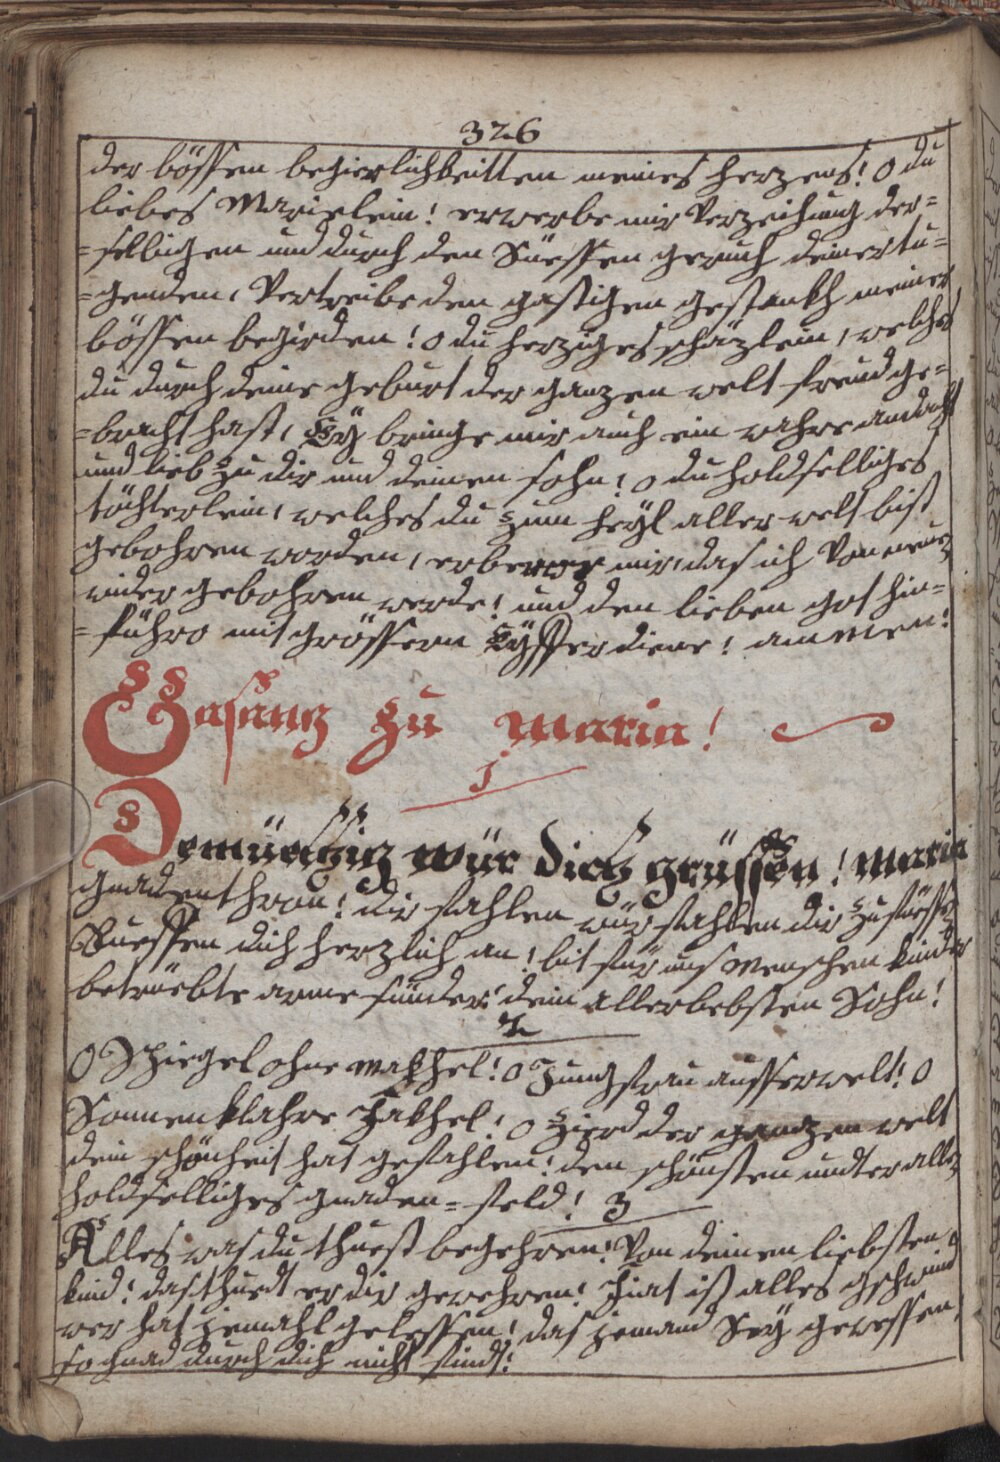 326
der bössen begierlichkeitten meines herzens! O du
liebes Marielein! erwerbe mir Verzeihung der=
=sellbigen und durch den Süessen geruch deiner tu=
=genden, Vertreibe den gastigen gestankh meiner
bössen begirden! O du herziges schäzlein, welches
du durch deine geburt der ganzen welt freud ge=
=bracht hast, Ey bringe mir auch ein wahre andacht
und lieb zu dir und deinen sohn! O du holdselliges
töchterlein, welches du zum heyl aller welt bist
gebohren worden, erberrer mir, das ich Von neuen
wider gebohren werde! und den lieben got hin=
=führo mit grössern Eyffer diene! ammen!
Gesang zu maria!
1
Demüetig wür dich grüssen! maria
gnadenthron! dir fahlen wür fahlen dir zu füesse
Rueffen dich herzlich an! bit für uns menschen kinder
betrüebte arme sünder! dein allerliebsten Sohn!
2
O Spiegel ohne makhel! O Jungfrau ausserwelt! O
Sonnenklahre Fakhel! O zierd der ganzen welt
dein schönheit hat gefahlen! den schönsten undter allen
holdselliges gnaden=feld! 3
Alles was du thuest begehren! Von deinen liebsten
kind! das thuedt er dir gewehren! Fiat ist alles gschwind
wer hat jemahl gelessen! das jemand Sey gewessen,
so gnad durch dich nicht findt!